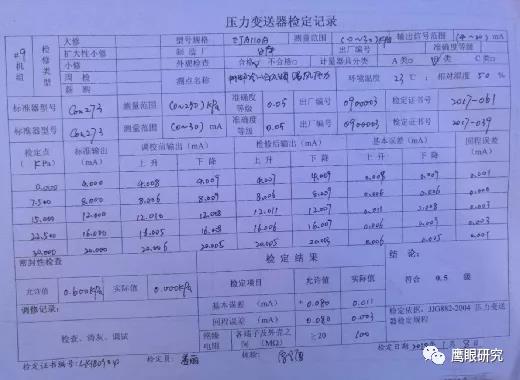 压力变送器检定记录
#9 机组 检修类型 大修 型号规格 EJA110A 测量范围 (0~30)kPa 输出信号范围 (4~20) mA
扩大性小修 制造厂 出厂编号 准确度等级
小修 外观检查 合格 不合格○ 计量器具分类 A类○ B类 C类○
周检 测点名称 环境温度 23 ℃; 相对湿度 50 %
新购
标准器型号 Con273 测量范围 (0~250)kPa 准确度等级 0.05 出厂编号 0900003 检定证书号 2017-061
标准器型号 Con273 测量范围 (0~30) mA 准确度等级 0.05 出厂编号 0900003 检定证书号 2017-039
检定点 (KPa) 标准输出 (mA) 调校前输出 (mA) 检修后输出 (mA) 基本误差 (mA) 回程误差 (mA)
上升 下降 上升 下降 上升 下降
0.000 4.000 4.008 4.009 4.007 4.009 0.008 0.009 0.001
7.500 8.000 8.006 8.009 8.006 0.006 0.000
15.000 12.000 12.010 12.008 12.011 12.007 0.011 0.008 0.003
22.500 16.000 16.005 16.008 16.006 16.007 0.003 0.003
30.000 20.000 20.006 20.005 20.005 0.006 0.005 0.001
密封性检查 检定结果 结论:
允许值 0.600kPa 实际值 0.000kPa 检定项目 允许值 实际值 符合 0.5 级
基本误差 (mA) ±0.080 0.011
调修记录: 回程误差 (mA) 0.080 0.003 检定依据: JJG882-2004 压力变送器检定规程
检查、清灰、调试 绝缘电阻 各端子及外壳之间 (MΩ) ≥20 100
检定证书编号: 检定员: 核检: 检定日期 1月8日
鹰眼研究